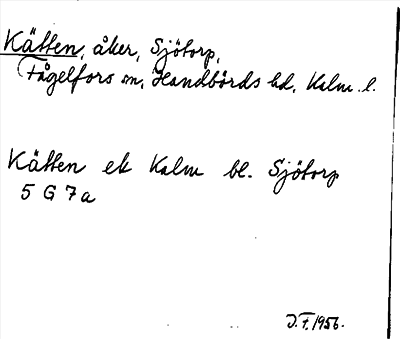 Kätten, åker, Sjötorp,
Fågelfors sn, Handbörds hd, Kalm. l.
Kätten ek Kalm bl. Sjötorp
5 G 7a
J.F. 1956.